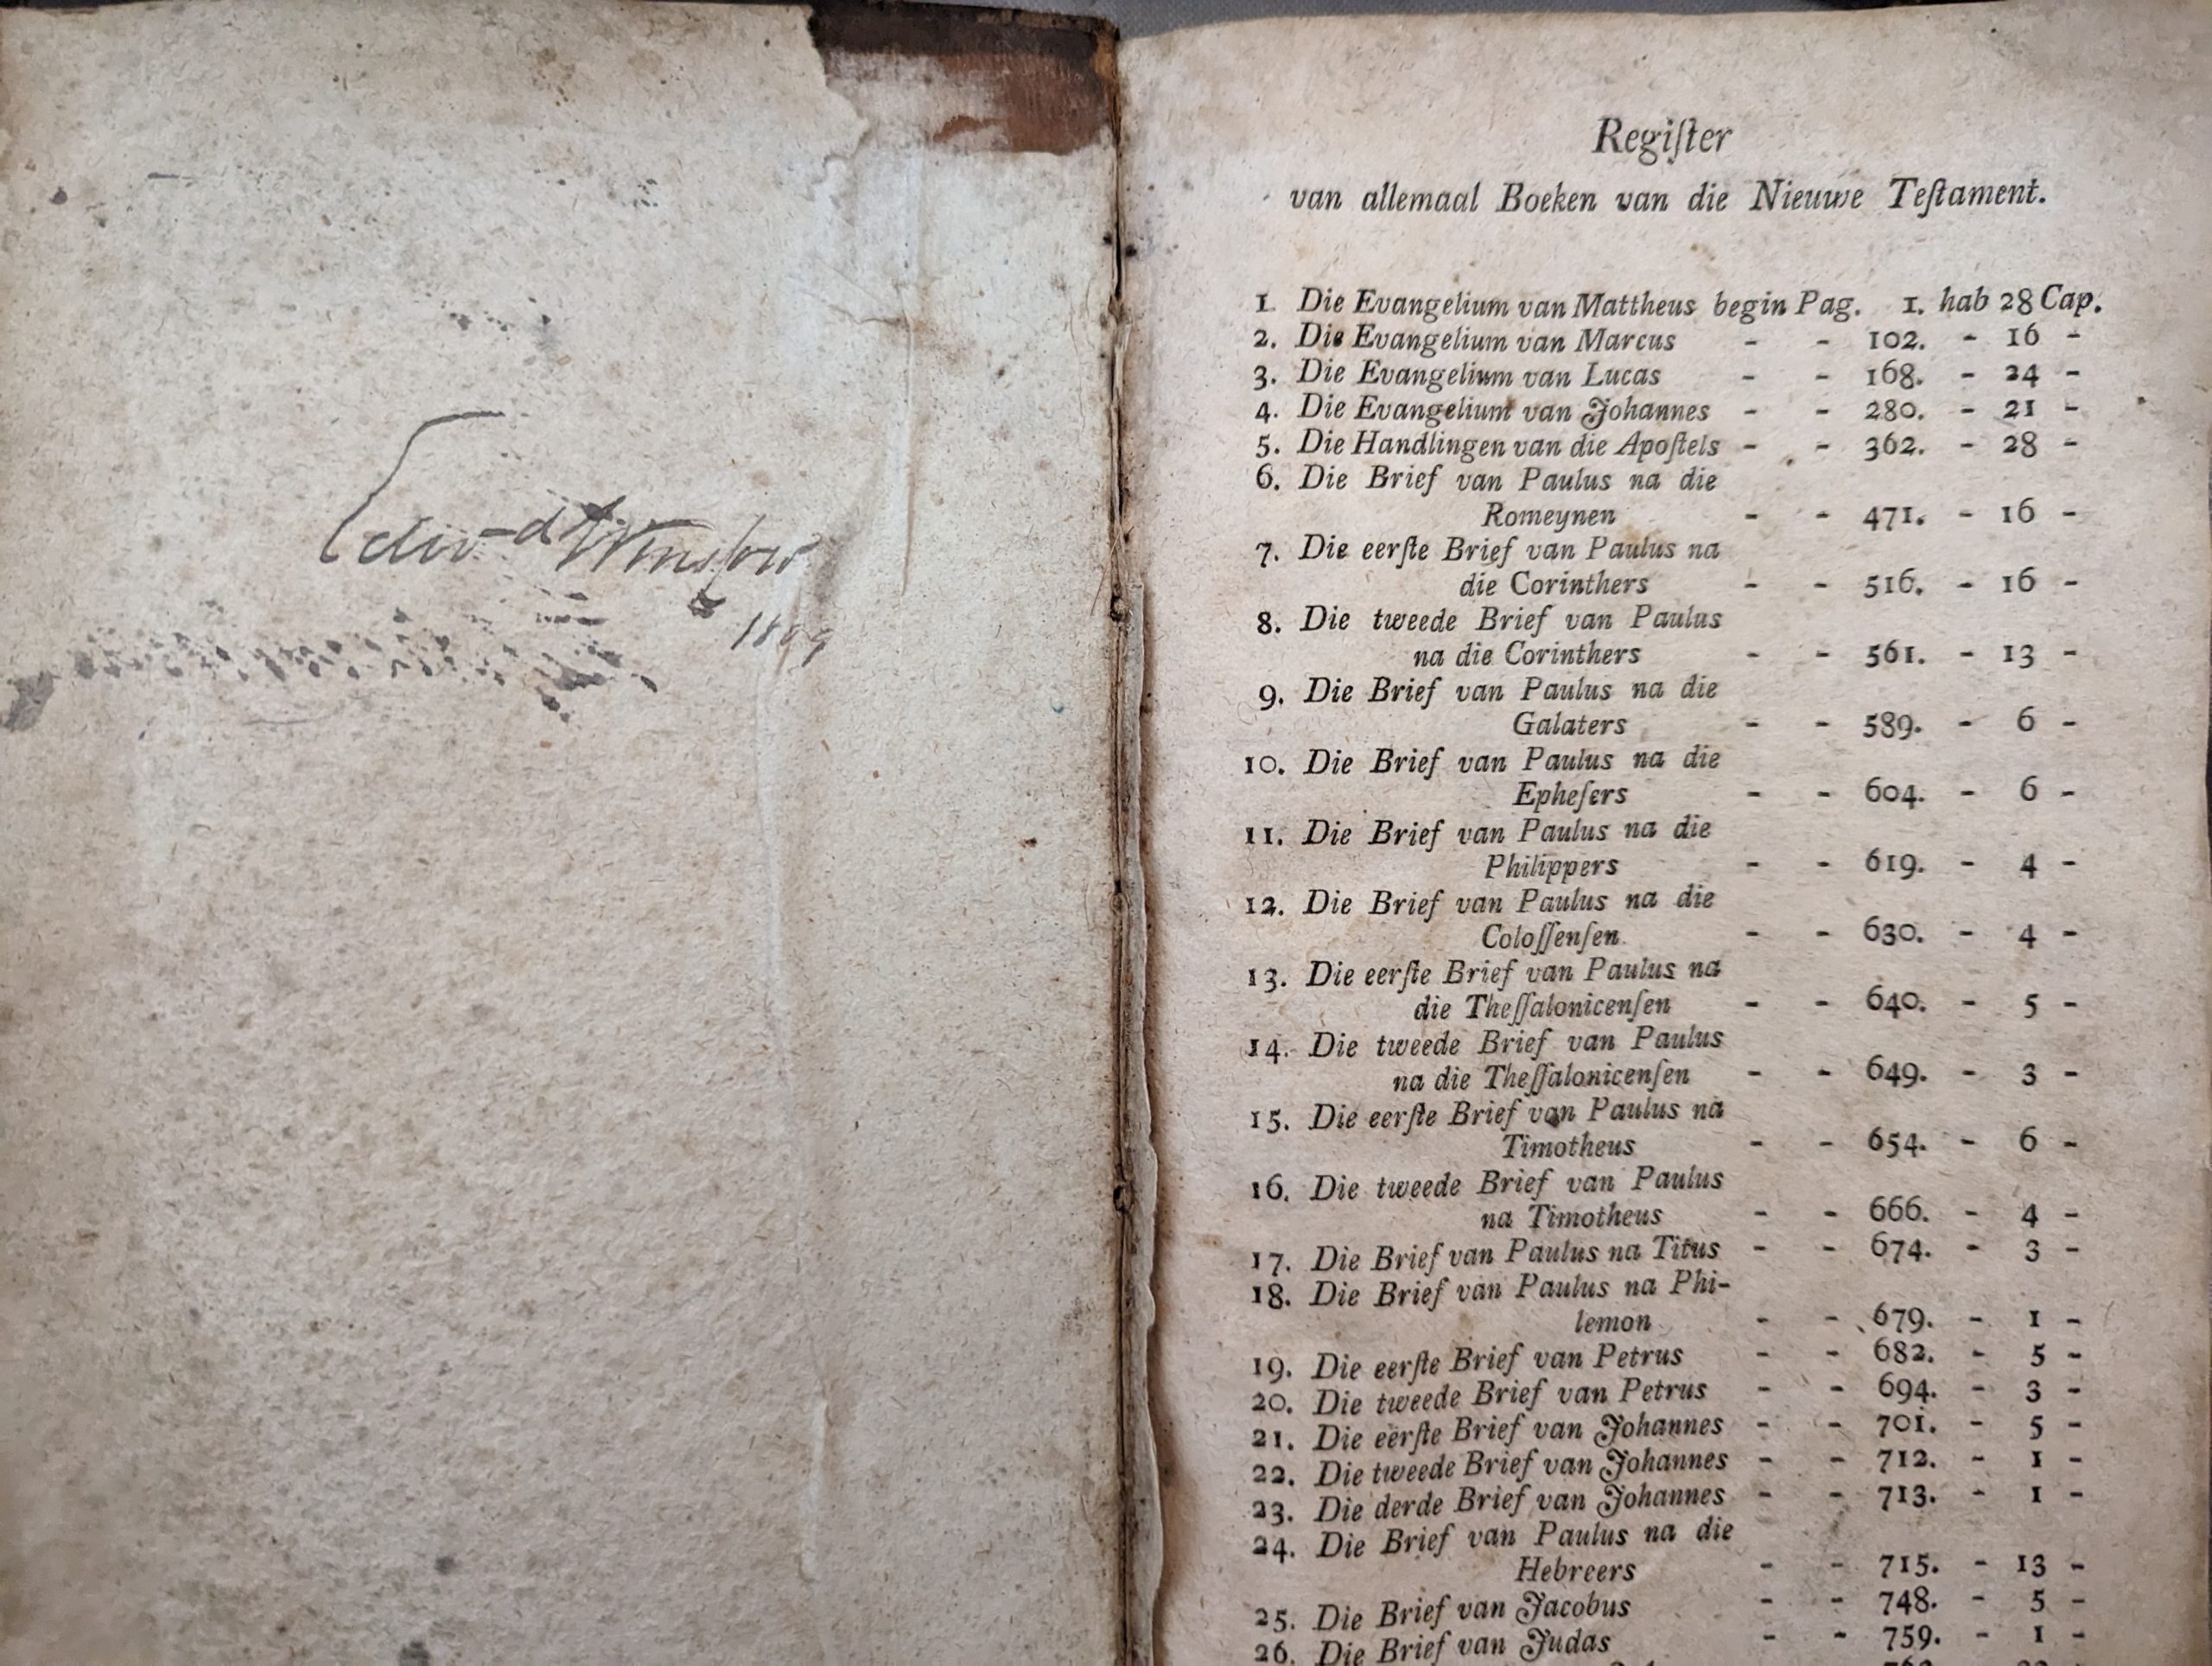 Edwd Winslow
1809
Regiſter
van allemaal Boeken van die Nieuwe Teſtament.
1. Die Evangelium van Mattheus begin Pag. 1. hab 28 Cap.
2. Die Evangelium van Marcus - - 102. - 16 -
3. Die Evangelium van Lucas - - 168. - 24 -
4. Die Evangelium van Johannes - - 280. - 21 -
5. Die Handlingen van die Apoſtels - - 362. - 28 -
6. Die Brief van Paulus na die
Romeynen - - 471. - 16 -
7. Die eerſte Brief van Paulus na
die Corinthers - - 516. - 16 -
8. Die tweede Brief van Paulus
na die Corinthers - - 561. - 13 -
9. Die Brief van Paulus na die
Galaters - - 589. - 6 -
10. Die Brief van Paulus na die
Epheſers - - 604. - 6 -
11. Die Brief van Paulus na die
Philippers - - 619. - 4 -
12. Die Brief van Paulus na die
Coloſſenſen - - 630. - 4 -
13. Die eerſte Brief van Paulus na
die Theſſalonicenſen - - 640. - 5 -
14. Die tweede Brief van Paulus
na die Theſſalonicenſen - - 649. - 3 -
15. Die eerſte Brief van Paulus na
Timotheus - - 654. - 6 -
16. Die tweede Brief van Paulus
na Timotheus - - 666. - 4 -
17. Die Brief van Paulus na Titus - - 674. - 3 -
18. Die Brief van Paulus na Phi-
lemon - - 679. - 1 -
19. Die eerſte Brief van Petrus - - 682. - 5 -
20. Die tweede Brief van Petrus - - 694. - 3 -
21. Die eerſte Brief van Johannes - - 701. - 5 -
22. Die tweede Brief van Johannes - - 712. - 1 -
23. Die derde Brief van Johannes - - 713. - 1 -
24. Die Brief van Paulus na die
Hebreers - - 715. - 13 -
25. Die Brief van Jacobus - - 748. - 5 -
26. Die Brief van Judas - - 759. - 1 -